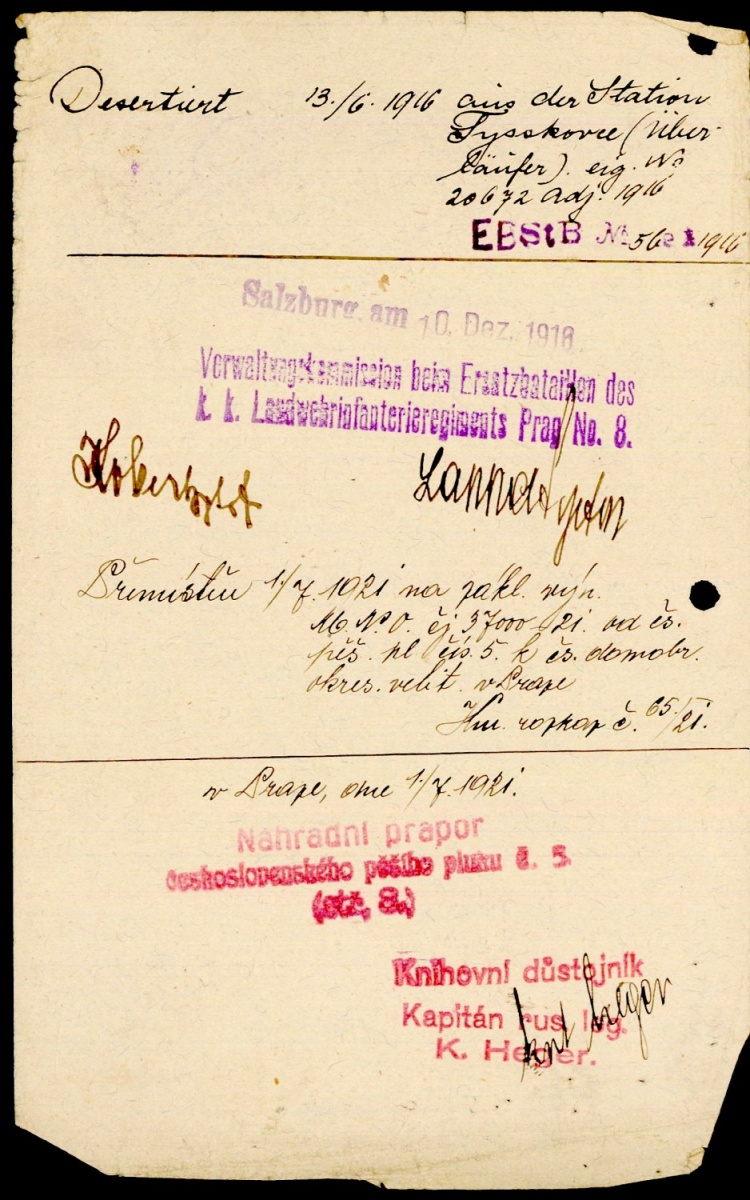 Desertiert 13./6. 1916 aus der Station
Tysskovce (Über-
läufer). eig. No
20672 Adj. 1916
EBStB No 56 1916
Salzburg, am 10. Dez. 1916
Verwaltungskommission beim Ersatzbataillon des
k. k. Landwehrinfanterieregiments Prag No. 8.
Přemístěn 1./7. 1921 na zákl. výn.
M.N.O. čj 37000 21. od čs.
pěš. pl čís. 5. k čs. domobr.
okres. velit. v Praze
Km. rozkaz č. 65/21.
v Praze, dne 1./7. 1921.
Náhradní prapor
československého pěšího pluku č. 5.
(stř. 8.)
Knihovní důstojník
Kapitán rus. leg.
K. Heger.
kpt Heger